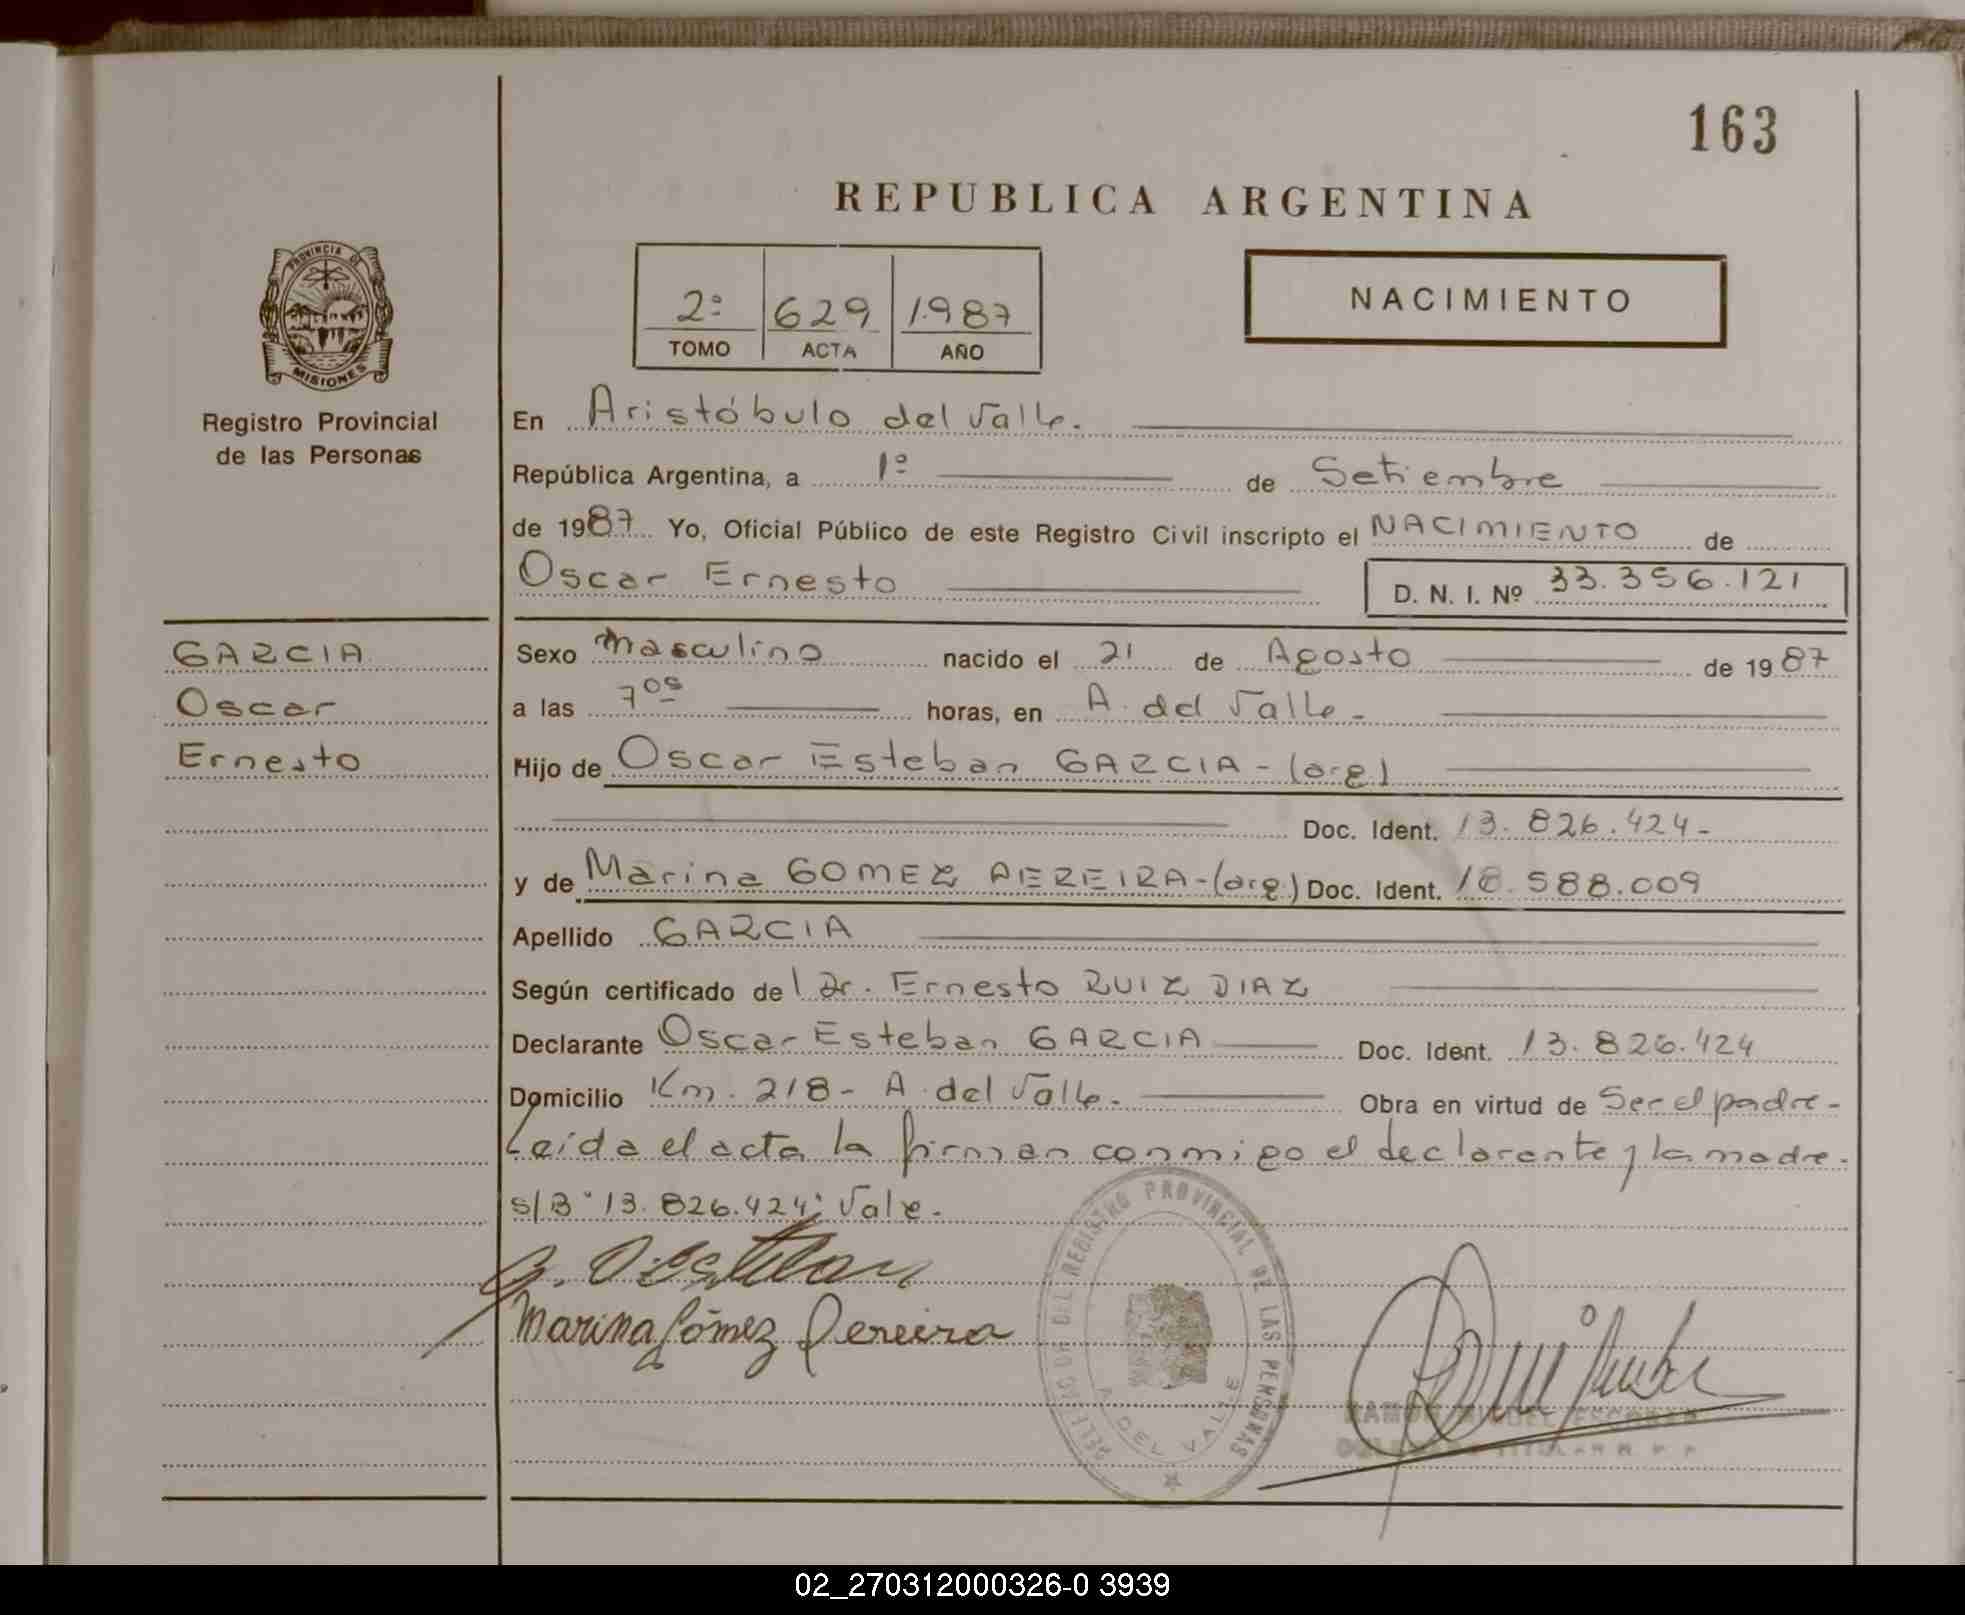 163
REPUBLICA ARGENTINA
PROVINCIA DE
MISIONES
Registro Provincial
de las Personas
2º 629 1987
TOMO ACTA AÑO
NACIMIENTO
En Aristóbulo del Valle.
República Argentina, a 1º de Setiembre
de 1987 Yo, Oficial Público de este Registro Civil inscripto el NACIMIENTO de
Oscar Ernesto D. N. I. Nº 33.356.121
GARCIA
Oscar
Ernesto
Sexo Masculino nacido el 21 de Agosto de 1987
a las 7 05 horas, en A. del Valle -
Hijo de Oscar Esteban GARCIA - (arg)
Doc. Ident. 13.826.424-
y de Marina GOMEZ PEREIRA - (arg.) Doc. Ident. 18.588.009
Apellido GARCIA
Según certificado del Dr. Ernesto RUIZ DIAZ
Declarante Oscar Esteban GARCIA Doc. Ident. 13.826.424
Domicilio Km. 218 - A. del Valle. Obra en virtud de Ser el padre -
Leída el acta la firman conmigo el declarante y la madre.
s/B "13.826.424" Vale.
Marina Gómez Pereira
REGISTRO PROVINCIAL DE LAS PERSONAS
A. DEL VALLE
RAMON MIGUEL ESCOBAR
02_270312000326-0 3939